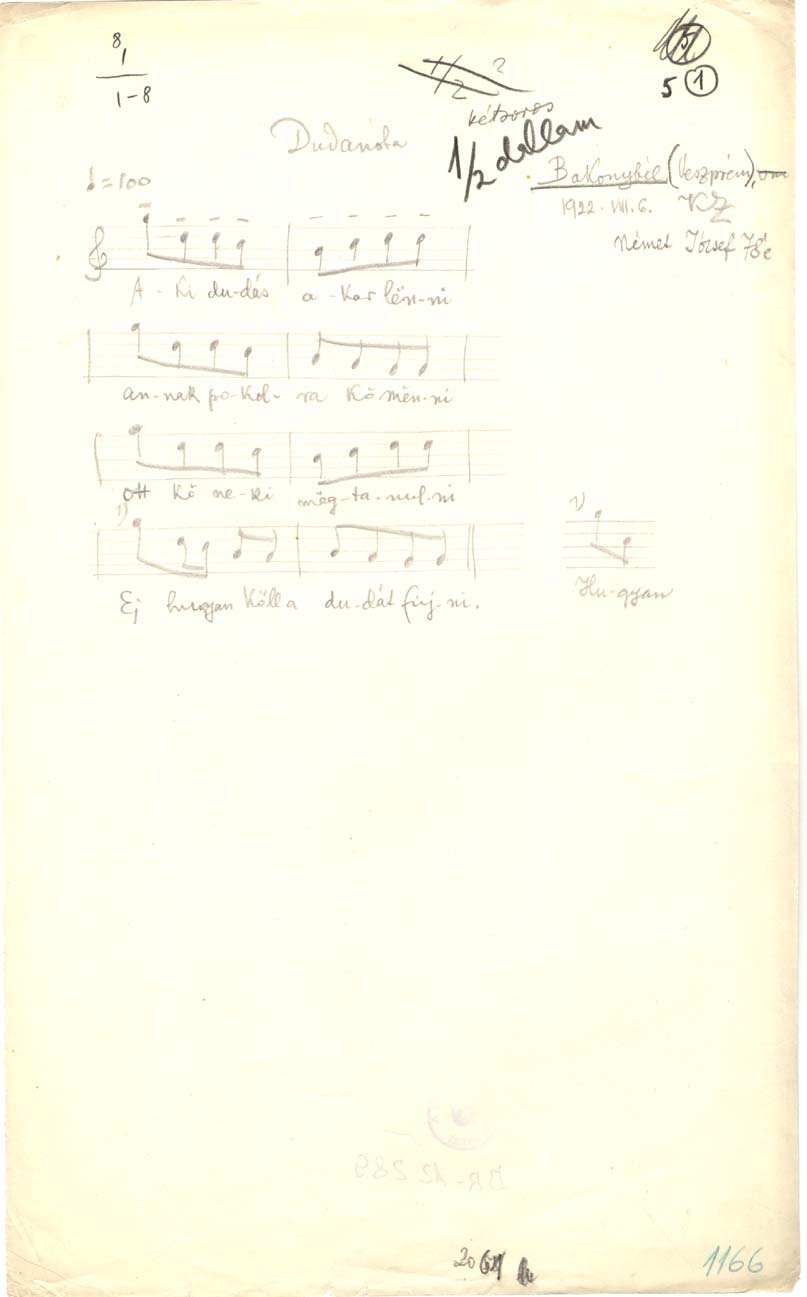 8
1
1-8
5 1
2 2
kétsoros
1/2 dallam
Dudanóta
Bakonybél (Veszprém),
1922. VIII. 6. KZ
Német József 78 é
♩ = 100
A - ki du-dás a - kar lën-ni
an-nak po-kol- ra kő mën-ni
ott kő ne-ki mëg-ta-nul-ni
1)
Ej hugyan kőll a du-dát fúj-ni.
1)
Hu-gyan
BR-12289
1166